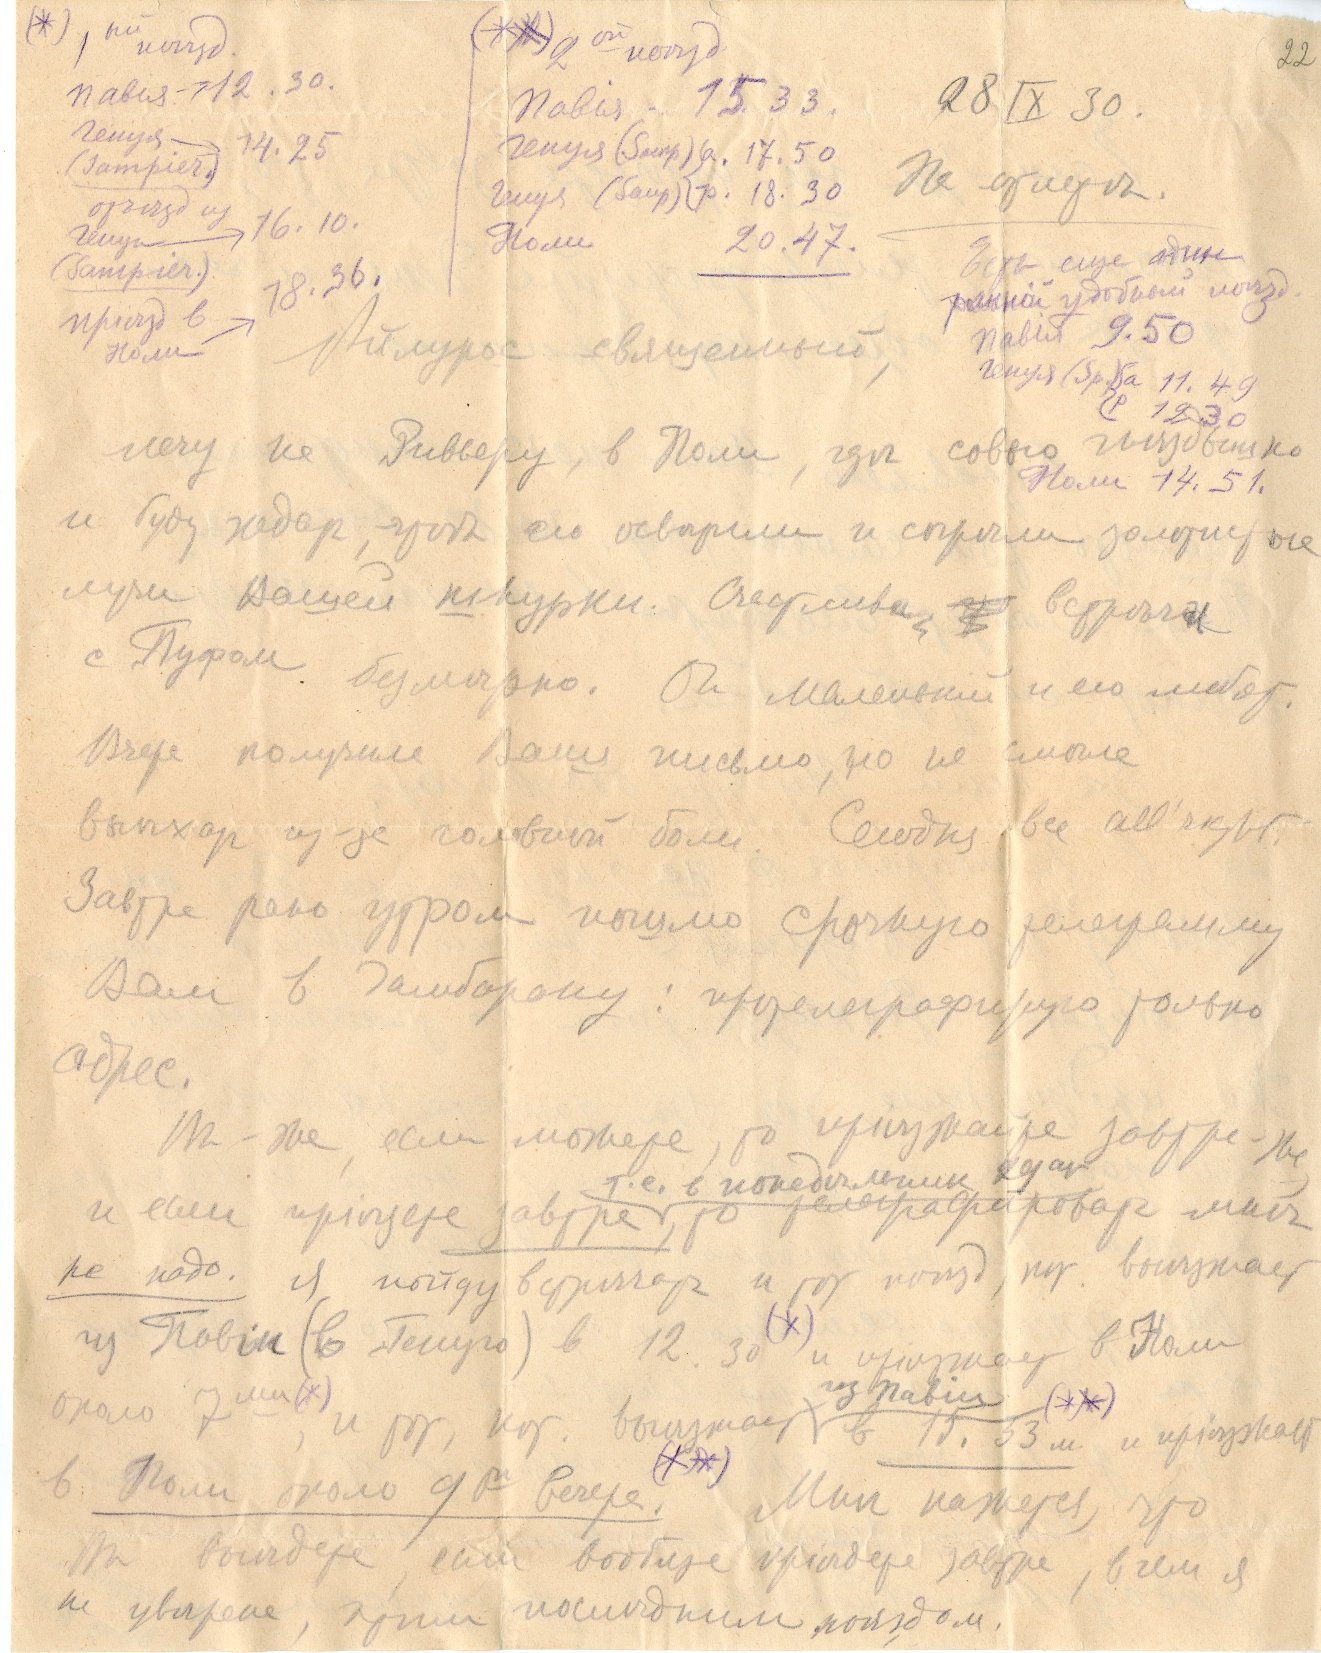 (*) 1ый поѣзд.
Павія → 12.30.
Генуя → 14.25
(Sampier.)
отъѣзд из
Генуи → 16.10.
(Sampier.)
приѣзд в → 18.36.
Ноли
(**) 2ой поѣзд
Павія - 15.33.
Генуя (Samp) a. 17.50
Генуя (Samp) p. 18.30
Ноли 20.47.
22
28 IX 30.
На
Есть еще один
ранній удобный поѣзд.
Павія 9.50
Генуя (Sp.) a 11.49
p 12.30
Ноли 14.51.
священный,
лечу на Ривьеру, в Ноли, гдѣ совью гнѣздышко
и буду ждать, чтобы его освятили и согрѣли золотистые
лучи Вашей шкурки. Счастлива встрѣчей
с Пуфом безмѣрно. Он маленькій и его любят.
Вчера получила Ваше письмо, но не смогла
выѣхать из-за головной боли. Сегодня все
Завтра рано утром пошлю срочную телеграмму
Вам в Гамбарану: протелеграфирую только
адрес.
Вы-же, если можете, то пріѣзжайте завтра-же
т.е. в понедѣльник
и если пріѣдете завтра, то телеграфировать мнѣ
не надо. Я пойду встрѣчать и тот поѣзд, кот. выѣзжает
из Павіи (в Геную) в 12.30 (*) и пріѣзжает в Ноли
около 7ми (*), и тот, кот. выѣзжает из Павіи в 15.33 м и пріѣзжает (**)
в Ноли около 9ти вечера. (**) Мнѣ кажется, что
Вы выѣдете, если вообще пріѣдете завтра, в чем я
не увѣрена, этим послѣдним поѣздом.